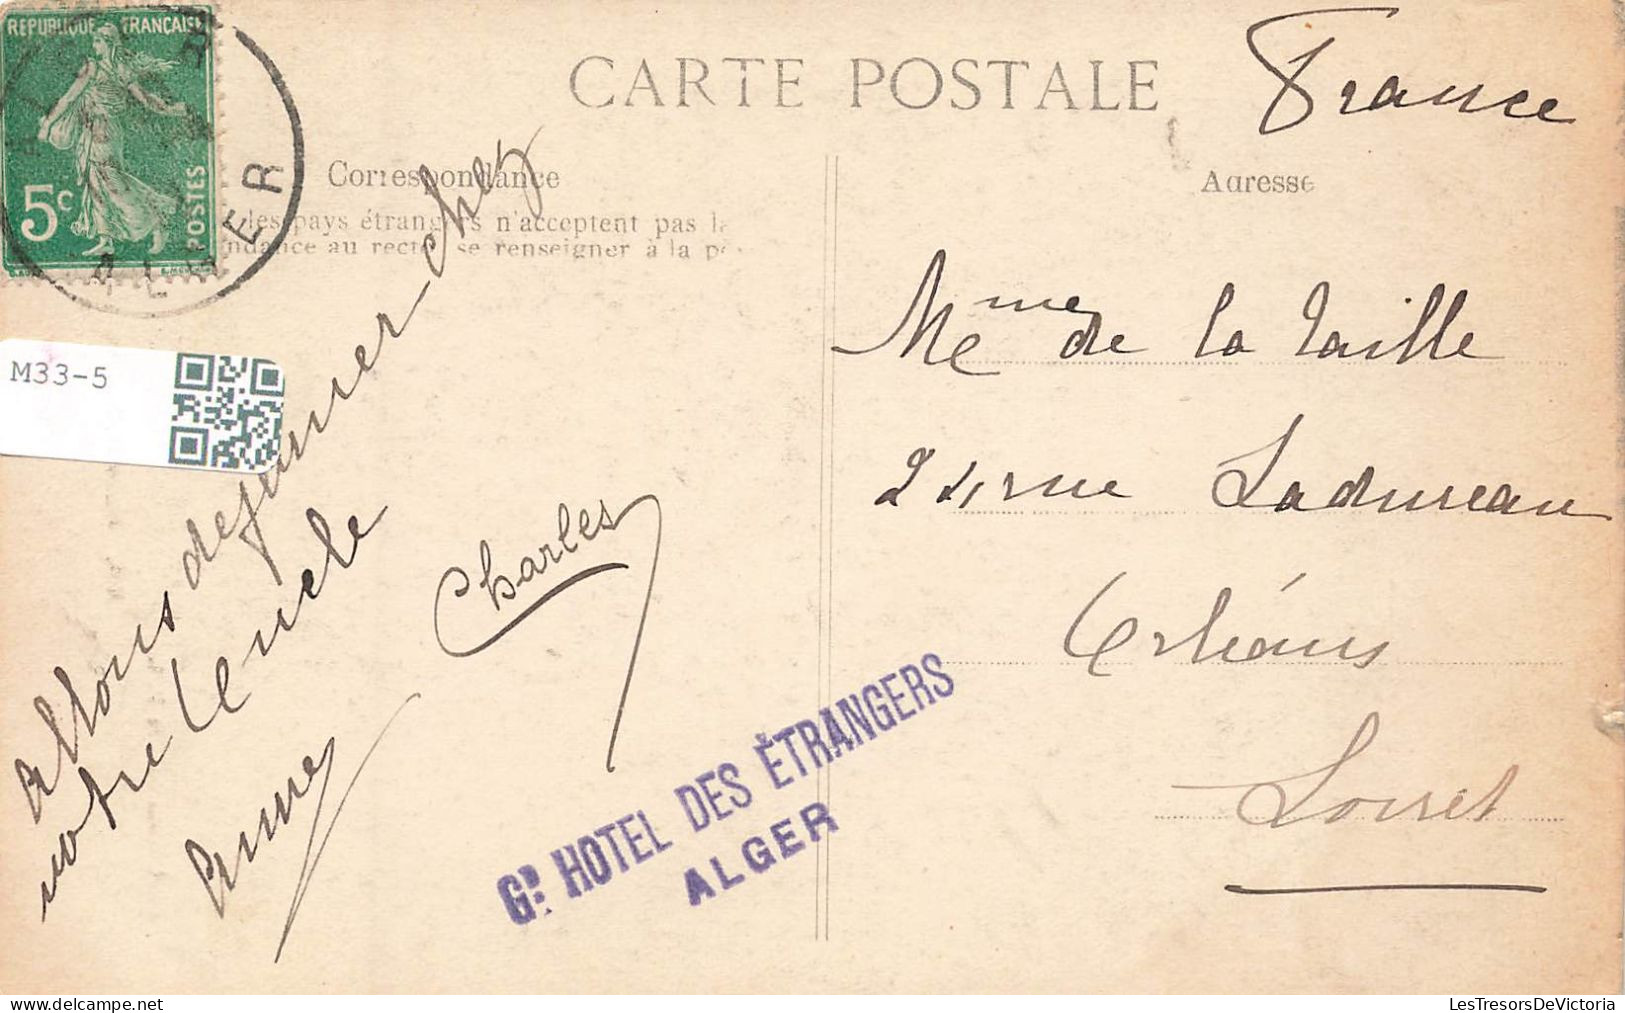 REPUBLIQUE FRANÇAISE
5c
POSTES
ALGER
CARTE POSTALE
France
Correspondance
Adresse
les pays étrangers n'acceptent pas la
ndance au recto se renseigner à la po
M33-5
Allons dejeuner chez
votre
Charles
Anne
Mme de la Taille
24 rue Ladureau
Orléans
Loiret
GD HOTEL DES ÉTRANGERS
ALGER
LesTresorsDeVictoria